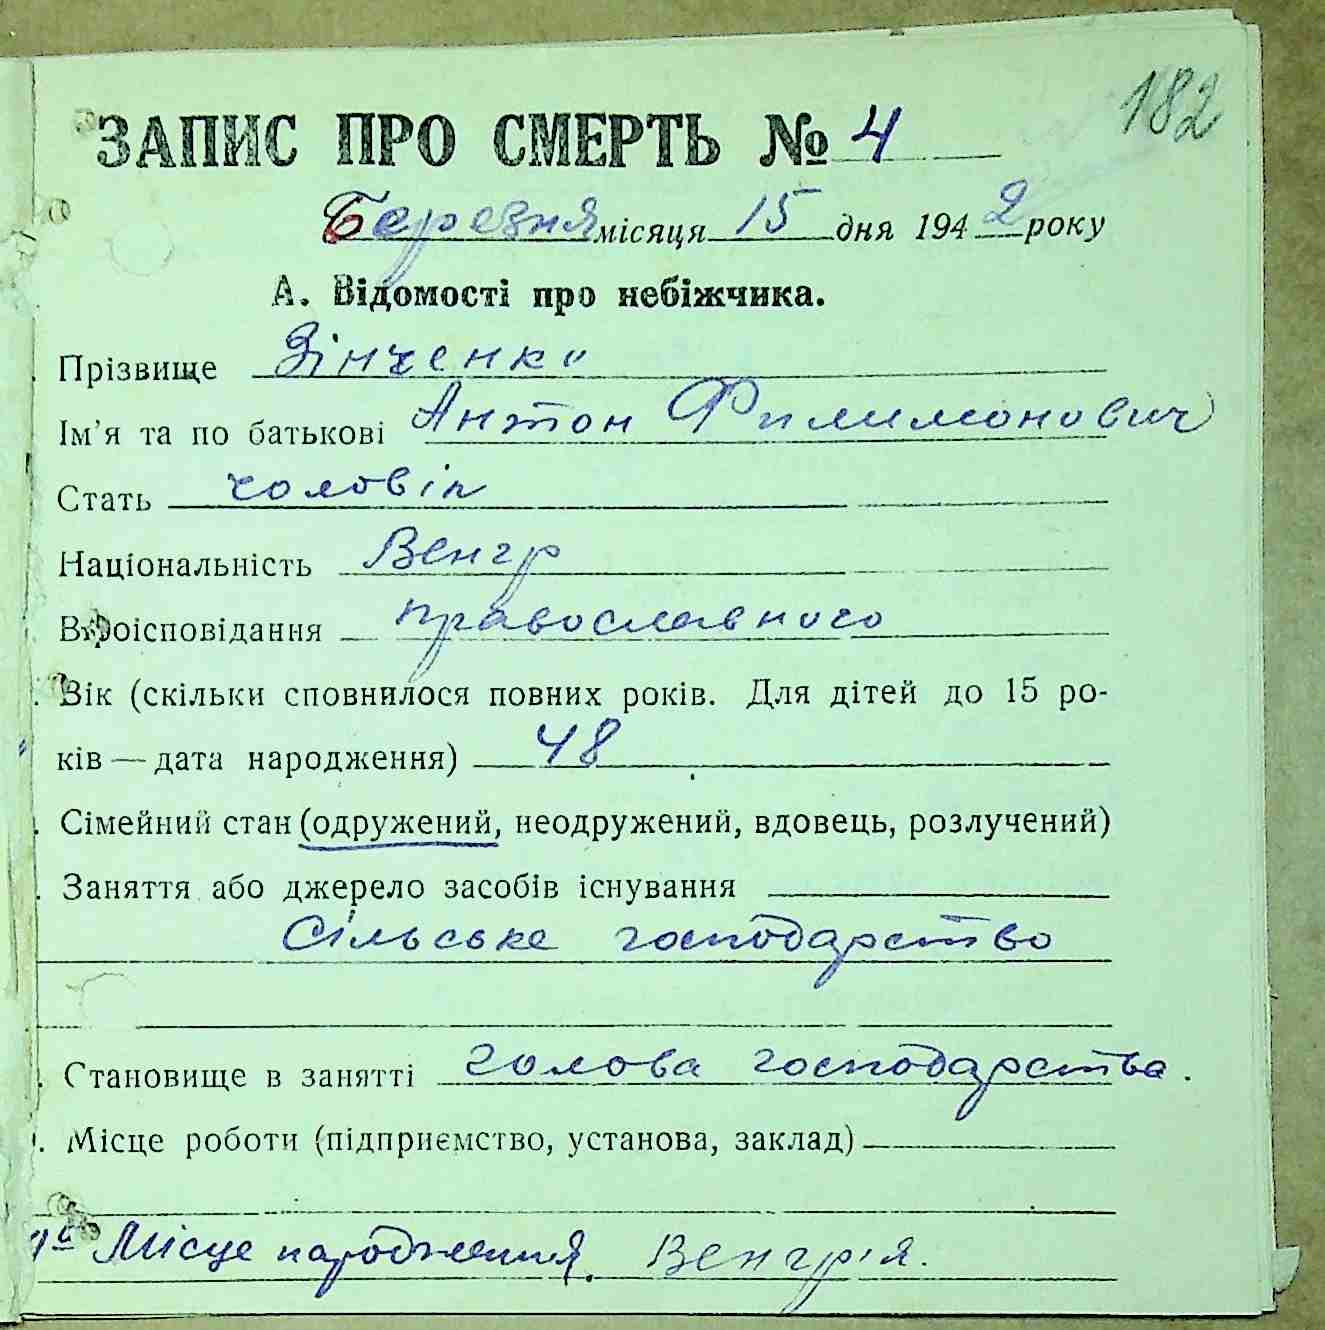 182
ЗАПИС ПРО СМЕРТЬ № 4
Березня місяця 15 дня 1942 року
А. Відомості про небіжчика.
Прізвище Зінченко
Ім'я та по батькові Антон Филимонович
Стать чоловік
Національність Венгр
Віроісповідання православного
Вік (скільки сповнилося повних років. Для дітей до 15 ро-
ків — дата народження) 48
Сімейний стан (одружений, неодружений, вдовець, розлучений)
Заняття або джерело засобів існування
Сільське господарство
Становище в занятті голова господарства.
Місце роботи (підприємство, установа, заклад)
Місце народження. Венгрія.